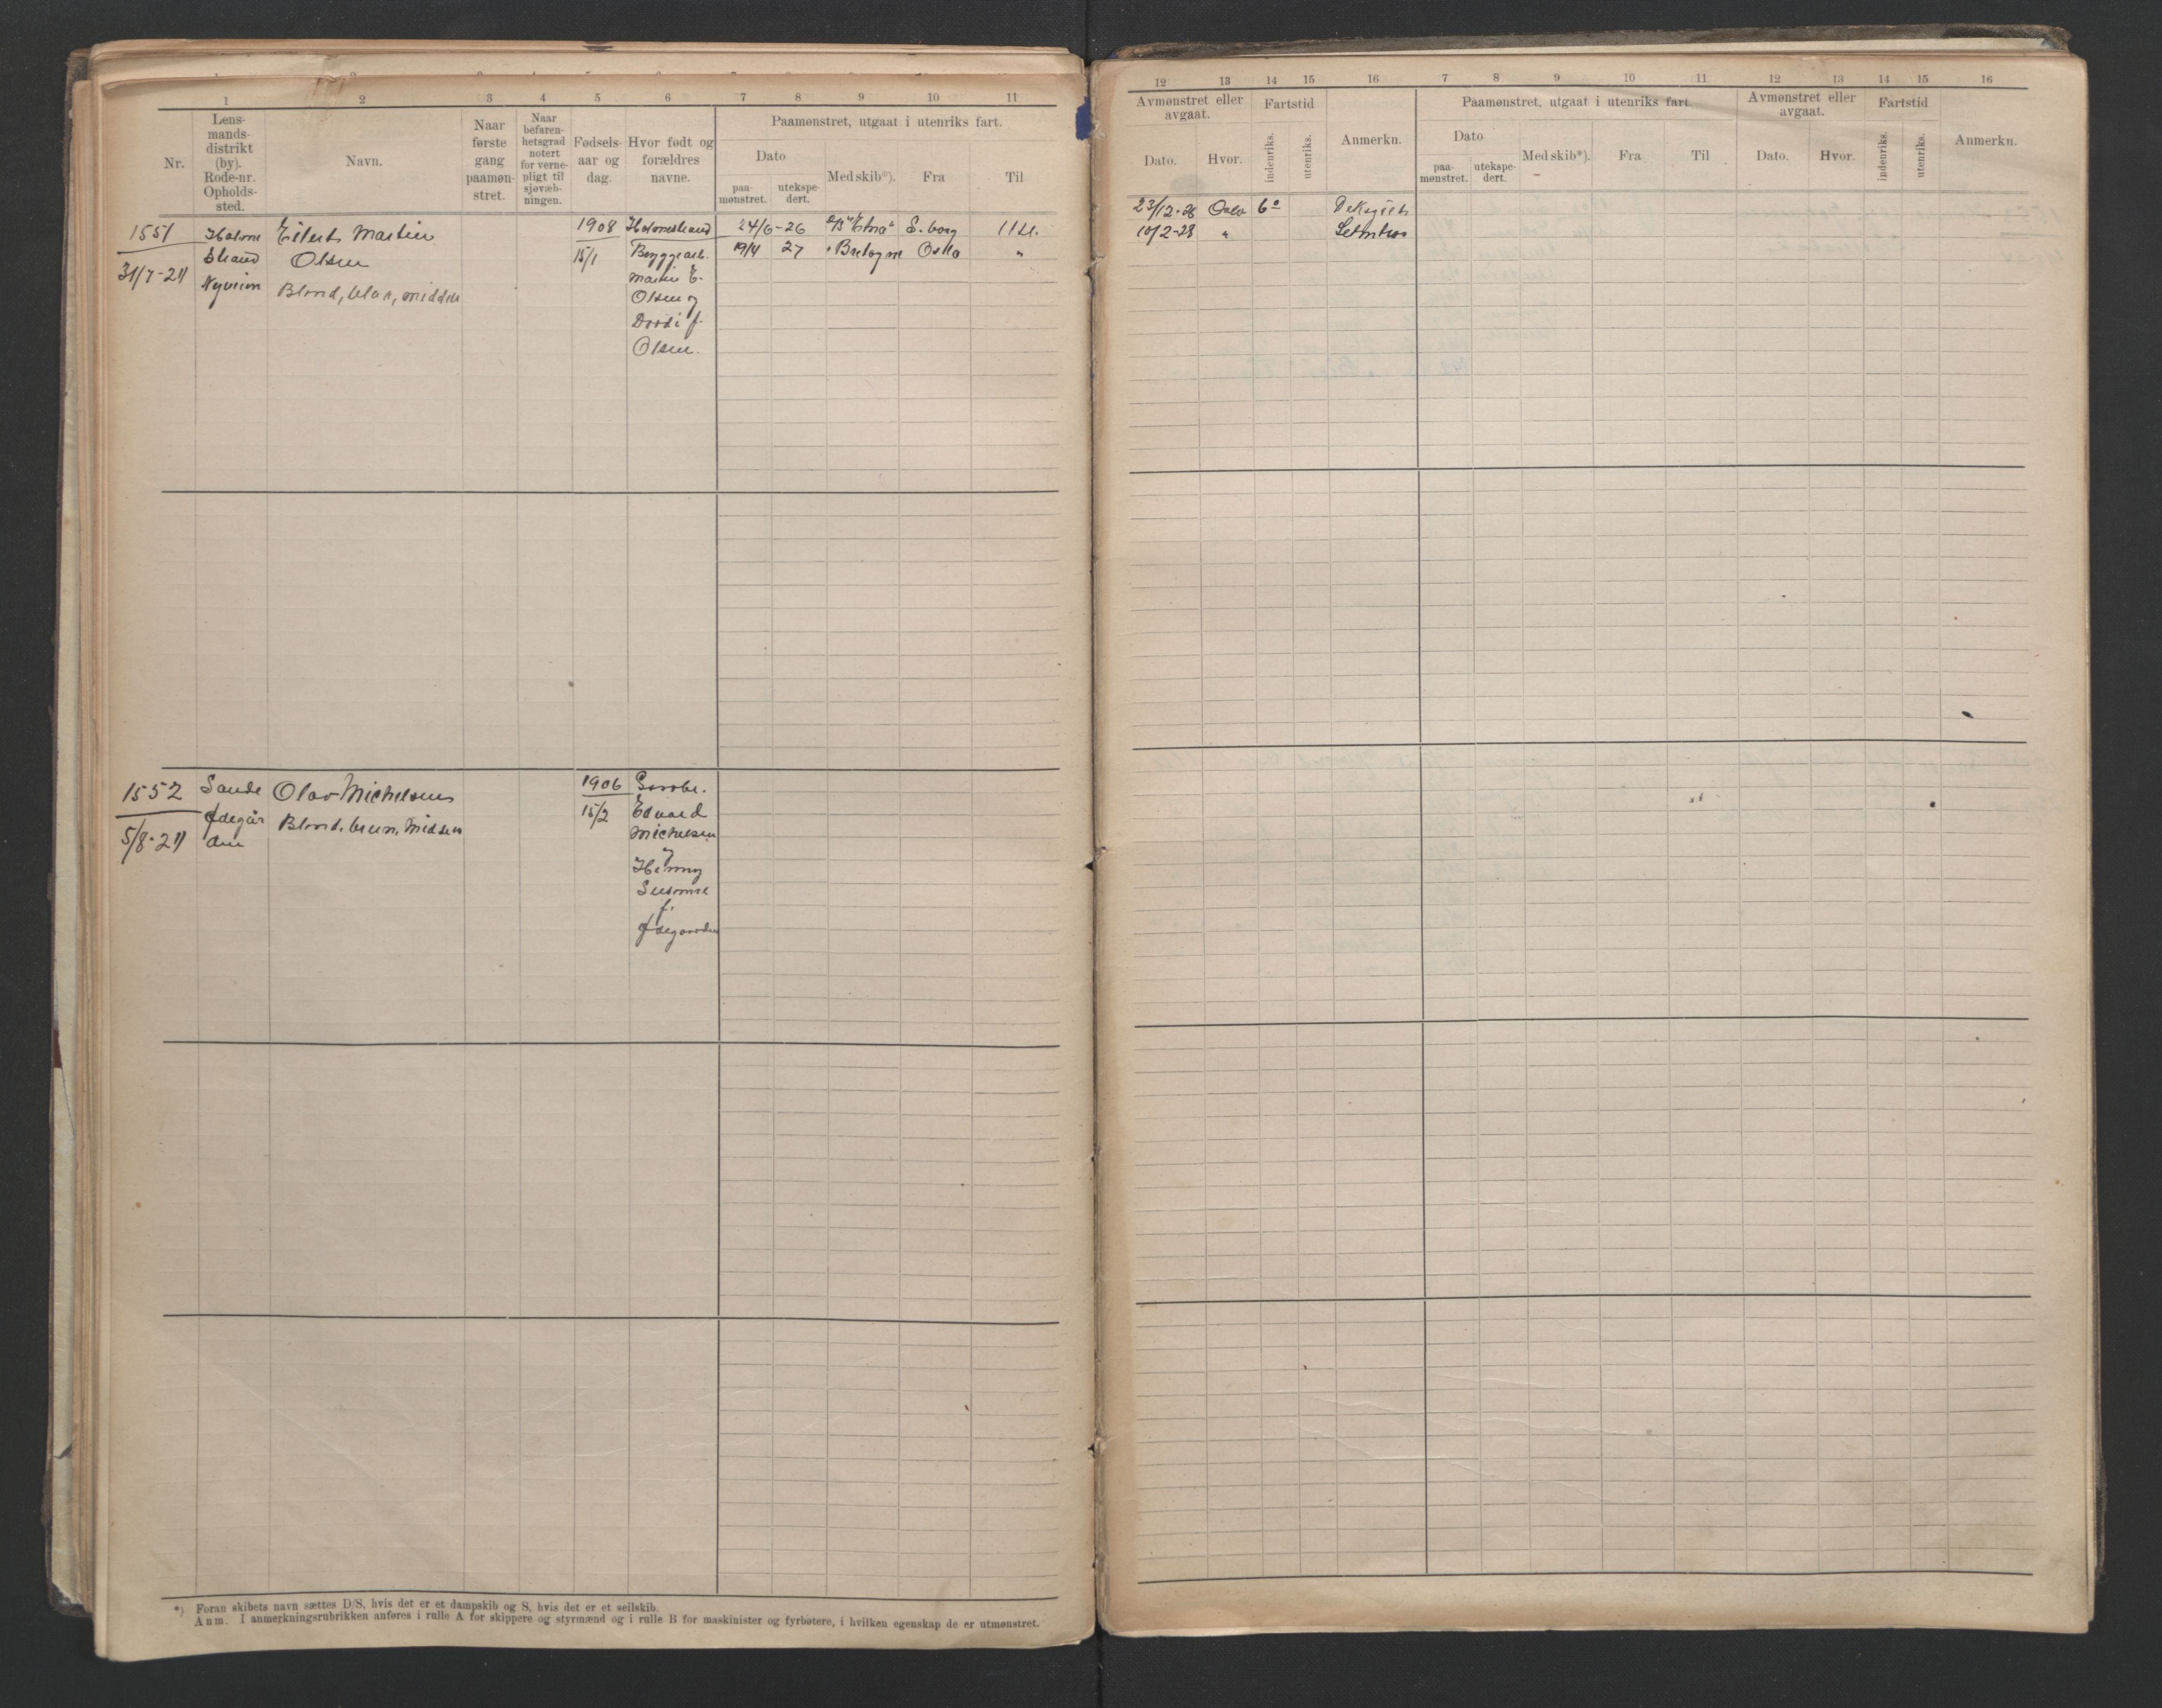 1 2 3 4 5 6 7 8 9 10 11
Nr.
Lens-
mands-
distrikt
(by).
Rode-nr.
Opholds-
sted.
Navn.
Naar
første
gang
paamøn-
stret.
Naar
befaren-
hetsgrad
notert
for verne-
pligt til
sjøvæb-
ningen.
Fødsels-
aar og
dag.
Hvor født og
forældres
navne.
Paamønstret, utgaat i utenriks fart.
Dato
paa-
mønstret.
utekspe-
dert.
Med skib*).
Fra
Til
1551 Holme Eilert Martin 1908 Holmestrand 24/6-26 "Etna" S.borg Utl.
strand Olsen 15/1 Bryggearb. 19/4 27 "Bretagne Oslo "
31/7-24 Nyveien Blond, blaa, middels Martin E.
Olsen og
f.
Olsen.
1552 Sande Olav Michelsen 1906
Ødegår Blond, brun, Middels 15/2 Edvard
5/8-24 den Michelsen
og
Henny
f.
Ødegaarden
*) Foran skibets navn sættes D/S, hvis det er et dampskib og S, hvis det er et seilskib.
Anm. I anmerkningsrubrikken anføres i rulle A for skippere og styrmænd og i rulle B for maskinister og fyrbøtere, i hvilken egenskap de er utmønstret.
12 13 14 15 16 7 8 9 10 11 12 13 14 15 16
Avmønstret eller
avgaat.
Dato.
Hvor.
Fartstid
indenriks.
utenriks.
Anmerkn.
Paamønstret, utgaat i utenriks fart.
Dato
paa-
mønstret.
utekspe-
dert.
Med skib*).
Fra
Til
Avmønstret eller
avgaat.
Dato.
Hvor.
Fartstid
indenriks.
utenriks.
Anmerkn.
23/12-26 Oslo 6° Deksgut
10/2-28 " Letmatros